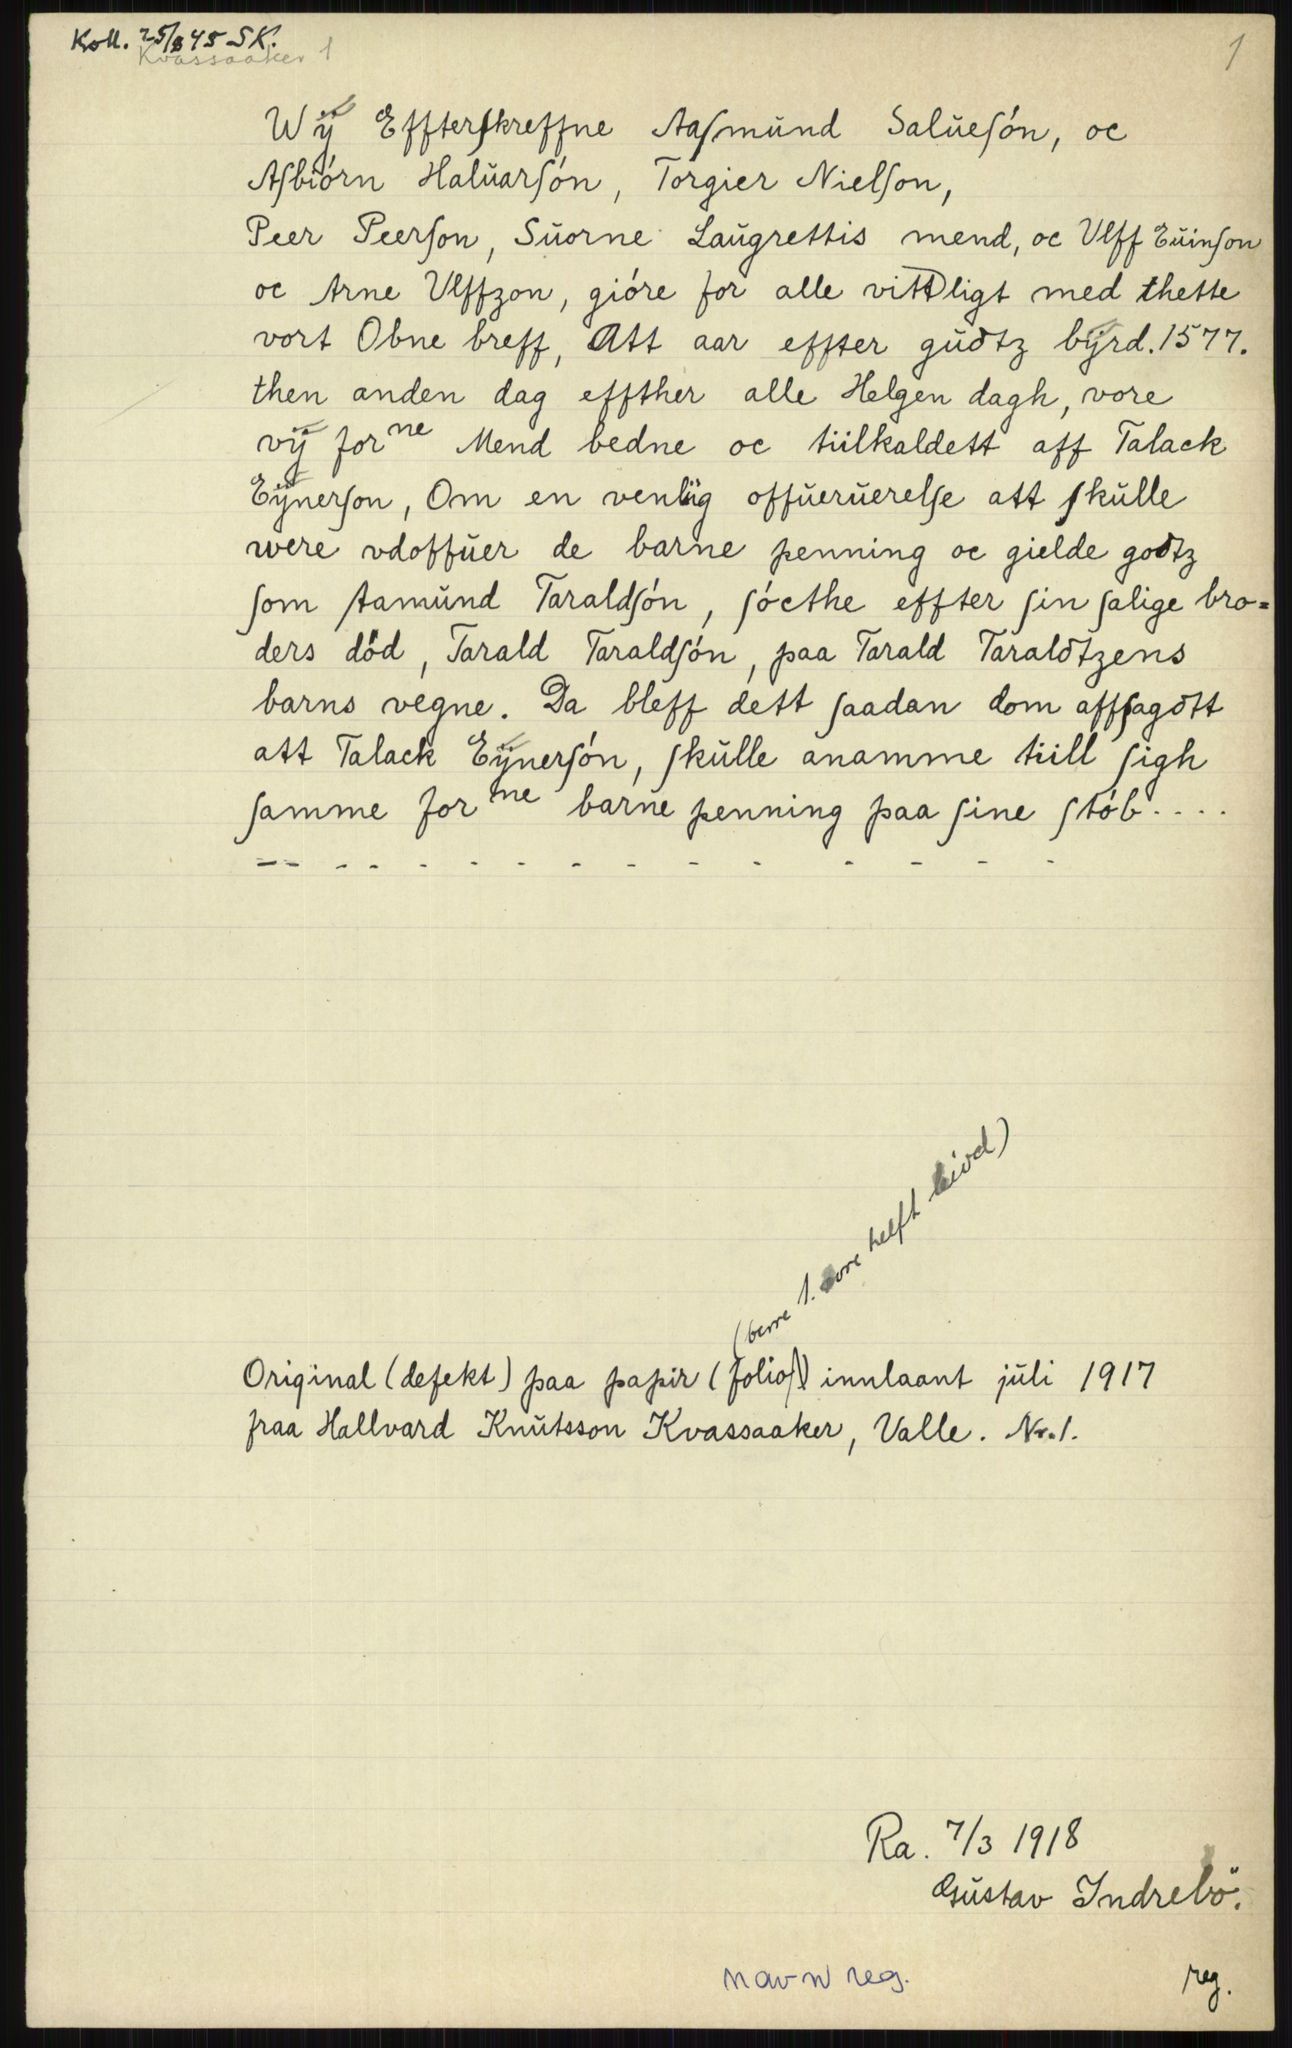 Koll. 25/8 45 SK.
Kvassaaker 1
1
Wÿ Effterſkreffne Aaſmŭnd Salŭeſón, oc
Aſbiórn Halŭarſón, Torgier Nielſon,
Peer Peerſon, Sŭorne Laŭgrettis mend, oc Vlff Eŭinſon
oc Arne Vlffzon, gióre for alle vittligt med thette
vort Obne breff, Att aar effter gŭdtz bÿrd. 1577.
then anden dag effther alle Helgen dagh, vore
vÿ forne Mend bedne oc tiilkaldett aff Talack
Eÿnerſon, Om en venlig offŭerŭerelſe att ſkŭlle
were vdoffŭer de barne penning oc gielde godtz
ſom Aamŭnd Taraldſón, ſócthe effter ſin ſalige bro=
ders död, Tarald Taraldſón, paa Tarald Taraldtzens
barns vegne. Da bleff dett ſaadan dom affſagdtt
att Talack Eÿnerſón, ſkŭlle anamme tiill ſigh
ſamme forne barne penning paa ſine ſtób....
— – - - - - - - - - - - - -
(berre 1. øvre helft livd)
Original (defekt) paa papir (folio) innlaant jŭli 1917
fraa Hallvard Knŭtsson Kvassaaker, Valle. Nr. 1.
Ra. 7/3 1918
Gŭstav Indrebö.
navn reg.
reg.